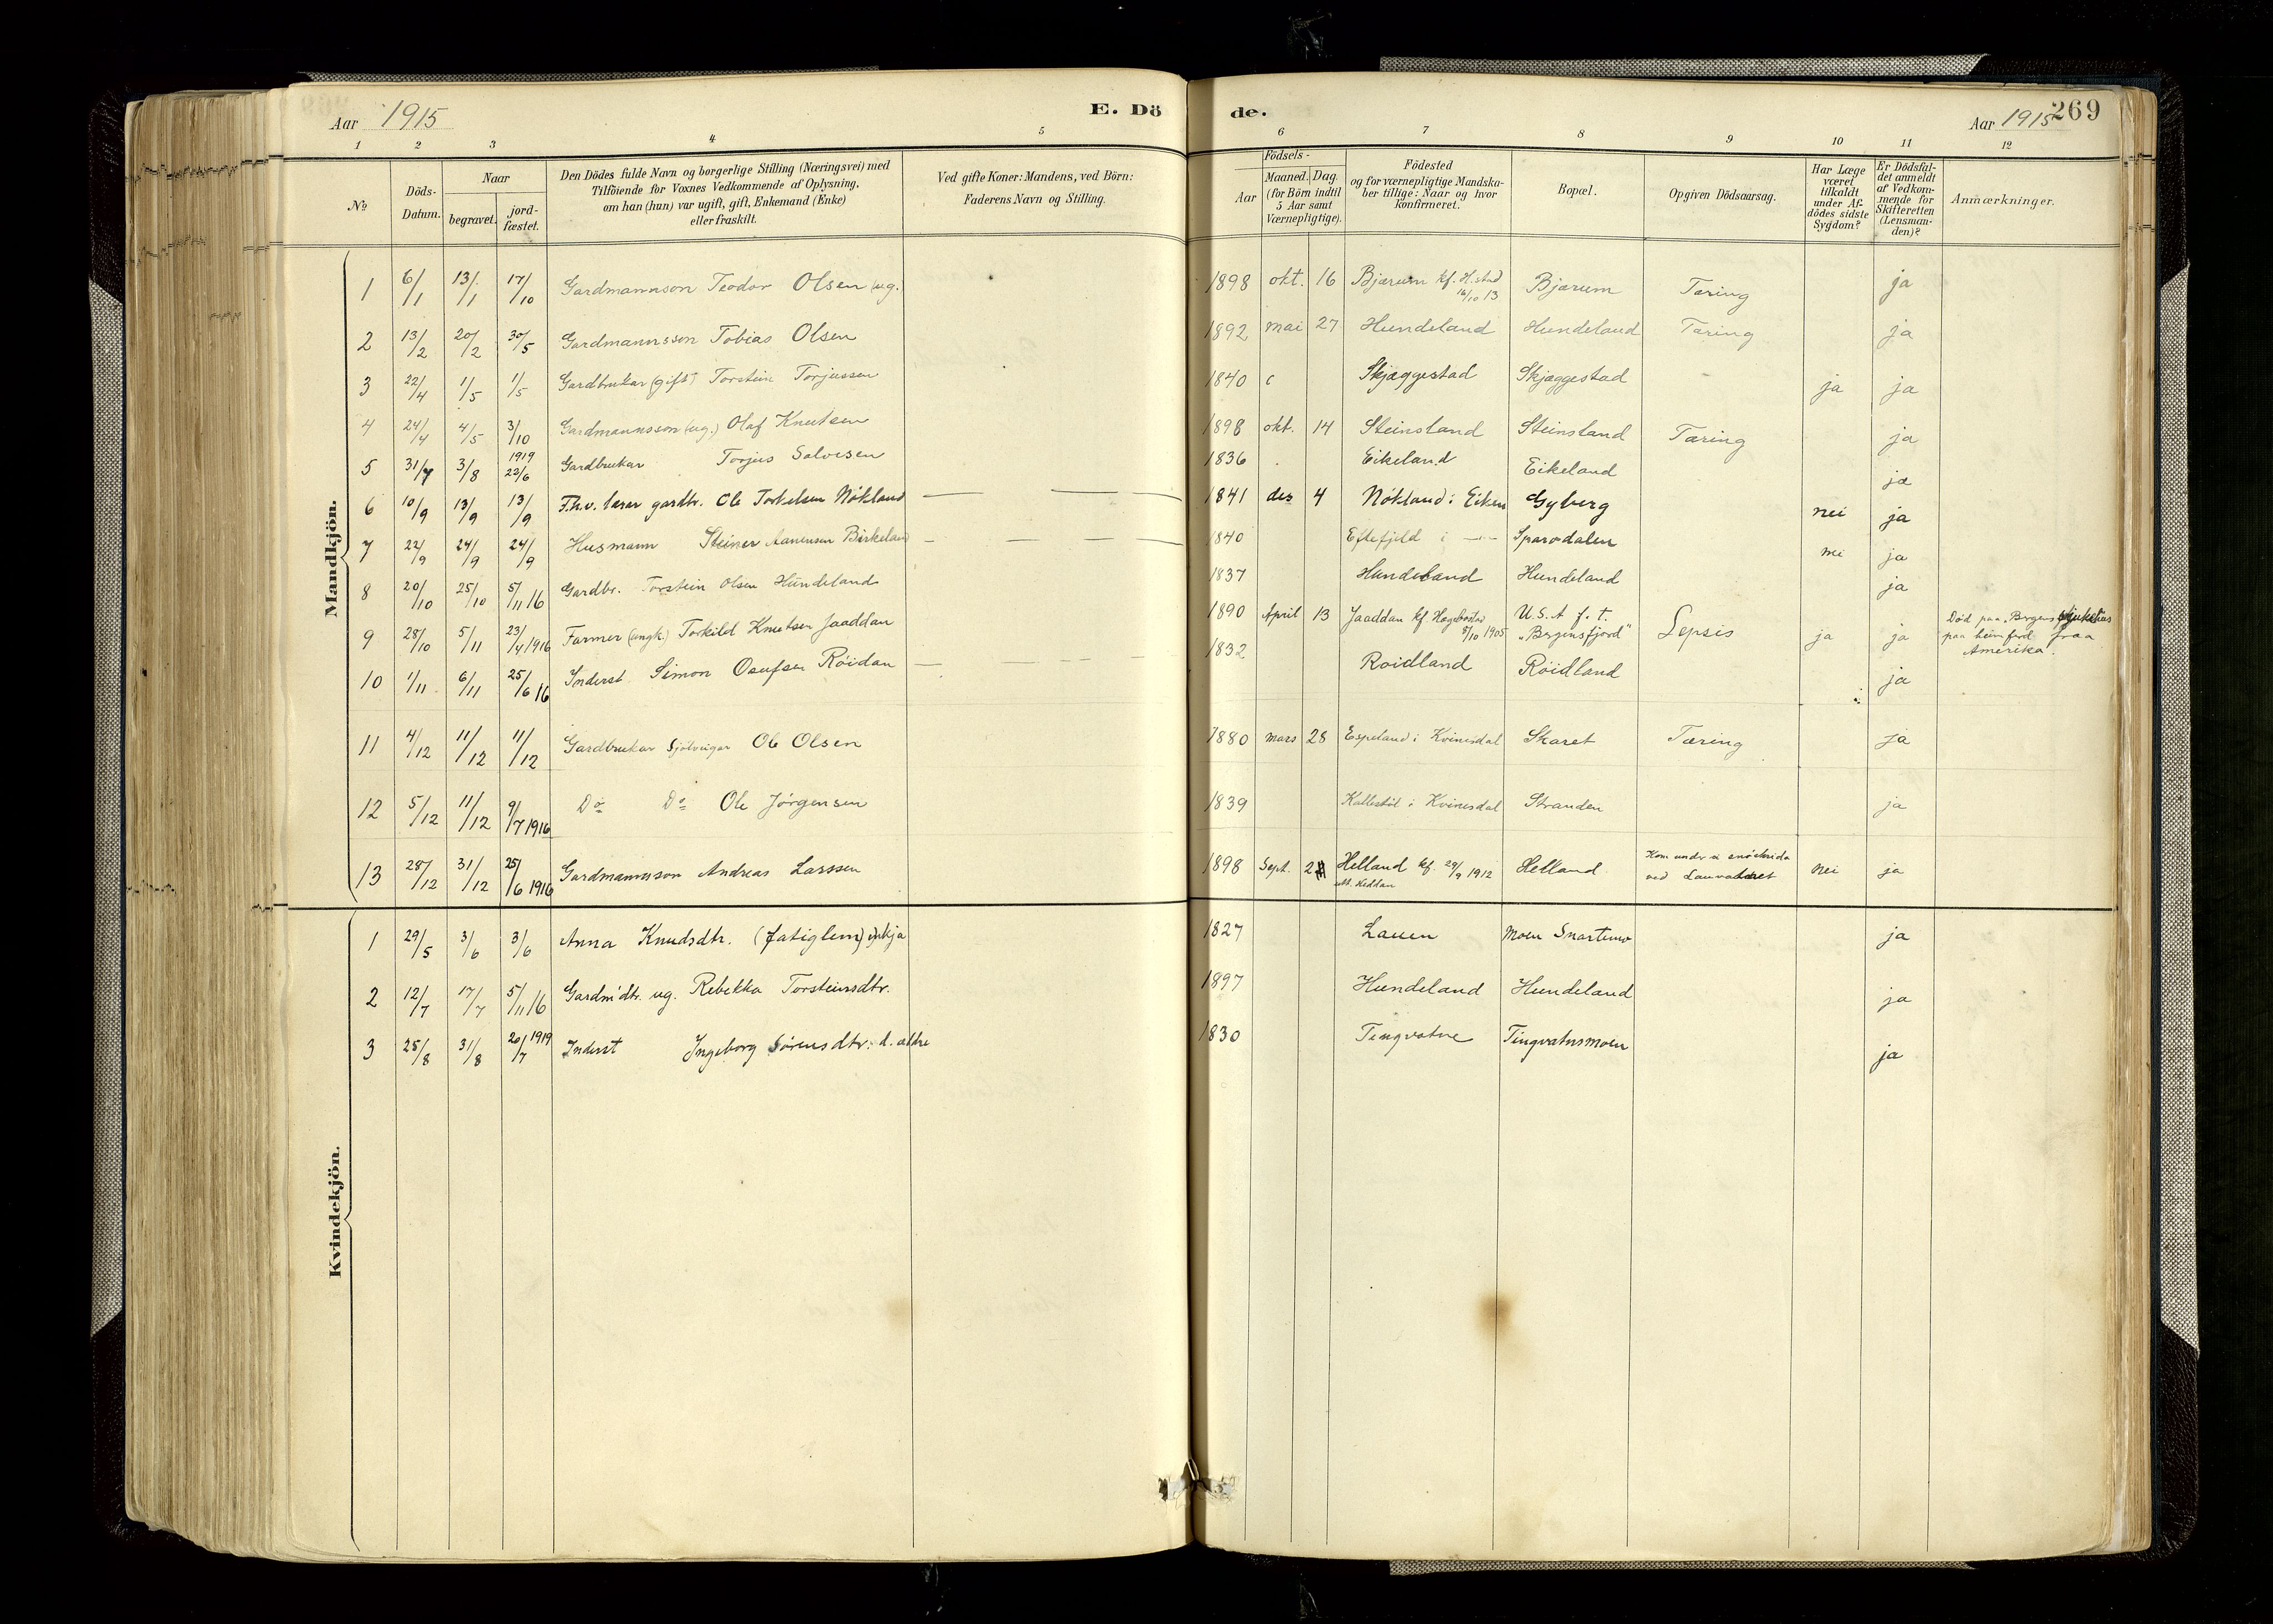 Aar 1915
E. Dö
de.
Aar 1915
269
1 2 3 4 5 6 7 8 9 10 11 12
No
Döds-Datum.
Naar
begravet.
jord-fæstet.
Den Dödes fulde Navn og borgerlige Stilling (Næringsvei) med
Tilföiende for Voxnes Vedkommende af Oplysning,
om han (hun) var ugift, gift, Enkemand (Enke)
eller fraskilt.
Ved gifte Koner: Mandens, ved Börn:
Faderens Navn og Stilling.
Födsels-
Aar
Maaned. Dag.
(for Börn indtil
5 Aar samt
Værnepligtige).
Födested
og for værnepligtige Mandska-
ber tillige: Naar og hvor
konfirmeret.
Bopæl.
Opgiven Dödsaarsag.
Har Læge
været
tilkaldt
under Af-
dödes sidste
Sygdom?
Er Dödsfal-
det anmeldt
af Vedkom-
mende for
Skifteretten
(Lensman-
den)?
Anmærkninger.
Mandkjön.
1 6/1 13/1 17/10 Gardmannson Teodor Olsen (ug. 1898 okt. 16 Bjærum kf. H.stad 16/10 13 Bjærum Tæring ja
2 13/2 20/2 30/5 Gardmannsson Tobias Olsen 1892 mai 27 Hundeland Hundeland Tæring ja
3 22/4 1/5 1/5 Gardbrukar (gift) Torstein Torjussen 1840 Skjæggestad Skjæggestad ja ja
4 24/4 4/5 3/10 Gardmannsson (ug.) Olaf Knutsen 1898 okt. 14 Steinsland Steinsland Tæring ja
5 31/7 3/8 1919 22/6 Gardbrukar Torjus Salvesen 1836 Eikeland Eikeland ja
6 10/9 13/9 13/9 F.h.v. lærar gardbr. Ole Torkelsen Nökland 1841 des 4 Nökland i Eiken Gyberg nei ja
7 22/9 24/9 24/9 Husmann Steiner Aanensen Birkeland 1840 Eftefjeld i - - Sparvdalen nei ja
8 20/10 25/10 5/11 16 Gardbr. Torstein Olsen Hundeland 1837 Hundeland Hundeland ja
9 28/10 5/11 23/4 1916 Farmer (ungk.) Torkild Knutsen Jaaddan 1890 April 13 Jaaddan kf Hægebostad 8/10 1905 U.S.A f. t. "Bergensfjord" Sepsis ja ja Död paa Bergens sjukehus
paa heimferd fraa
Amerika.
10 1/11 6/11 25/6 16 Inderst Simon Osufsen Röidan 1832 Roidland Röidland ja
11 4/12 11/12 11/12 Gardbrukar Sjöleigar Ole Olsen 1880 mars 28 Espeland i Kvinesdal Skaret Tæring ja
12 5/12 11/12 9/7 1916 Do Do Ole Jörgensen 1839 i Kvinesdal Stranden ja
13 28/12 31/12 25/6 1916 Gardmannsson Andreas Larssen 1898 Sept. Helland kf. 29/9 1912 Helland Kom under ei snöskrida
ved nei ja
Kvindekjön.
1 29/5 3/6 3/6 Anna Knudsdtr. (fatiglem) enkja 1827 Lauen Moen Snartemo ja
2 12/7 17/7 5/11 16 Gardm'dtr. ug. Rebekka Torsteinsdtr. 1897 Hundeland Hundeland ja
3 25/8 31/8 20/7 1919 Inderst Ingeborg Sörensdtr. d. ældre 1830 Tingvatne Tingvatnsmoen ja